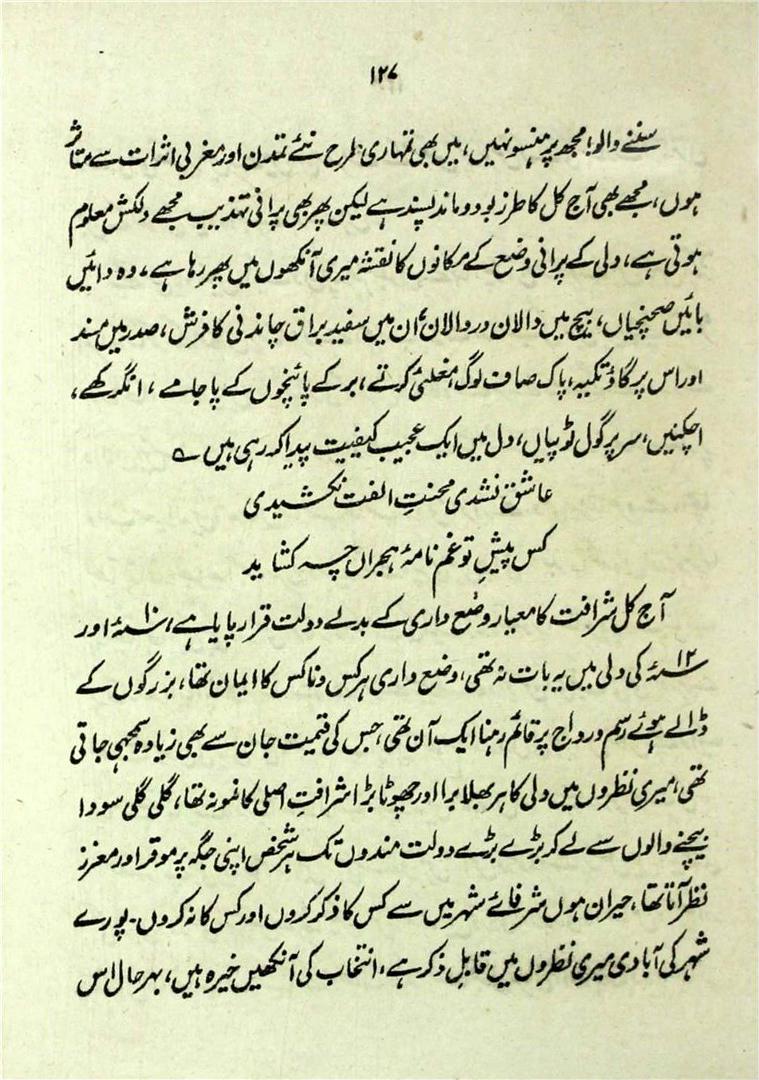 ۱۲۷
سننے والو! مجھ پر ہنسو نہیں، میں بھی تمہاری طرح نئے تمدن اور مغربی اثرات سے متاثر
ہوں، مجھے بھی آج کل کا طرز بود و ماند پسند ہے لیکن پھر بھی پرانی تہذیب مجھے دلکش معلوم
ہوتی ہے، دلی کے پرانی وضع کے مکانوں کا نقشہ میری آنکھوں میں پھر رہا ہے، وہ دائیں
بائیں صحنچیاں، بیچ میں دالان در دالان، اُن میں سفید براق چاندنی کا فرش، صدر میں مسند
اور اس پر گاؤ تکیہ، پاک صاف لوگ، مغلئی کرتے، بر کے پائنچوں کے پاجامے، انگرکھے،
اچکنیں، سر پر گول ٹوپیاں، دل میں ایک عجیب کیفیت پیدا کر رہی ہیں ؎
عاشق نشدی محنتِ الفت نکشیدی
کس پیشِ تو غم نامۂ ہجراں چہ کشاید
آج کل شرافت کا معیار وضع داری کے بدلے دولت قرار پایا ہے، ۱۰ سنہ اور
۱۲ سنہ کی دلی میں یہ بات نہ تھی، وضع داری ہر کس و ناکس کا ایمان تھا، بزرگوں کے
ڈالے ہوئے رسم و رواج پر قائم رہنا ایک آن تھی، جس کی قیمت جان سے بھی زیادہ سمجھی جاتی
تھی، میری نظروں میں دلی کا ہر بھلا برا اور چھوٹا بڑا شرافتِ اصلی کا نمونہ تھا، گلی گلی سودا
بیچنے والوں سے لے کر بڑے بڑے دولت مندوں تک ہر شخص اپنی جگہ پر موقر اور معزز
نظر آتا تھا، حیران ہوں شرفائے شہر میں سے کس کا ذکر کروں اور کس کا نہ کروں۔ پورے
شہر کی آبادی میری نظروں میں قابلِ ذکر ہے، انتخاب کی آنکھیں خیرہ ہیں، بہر حال اس